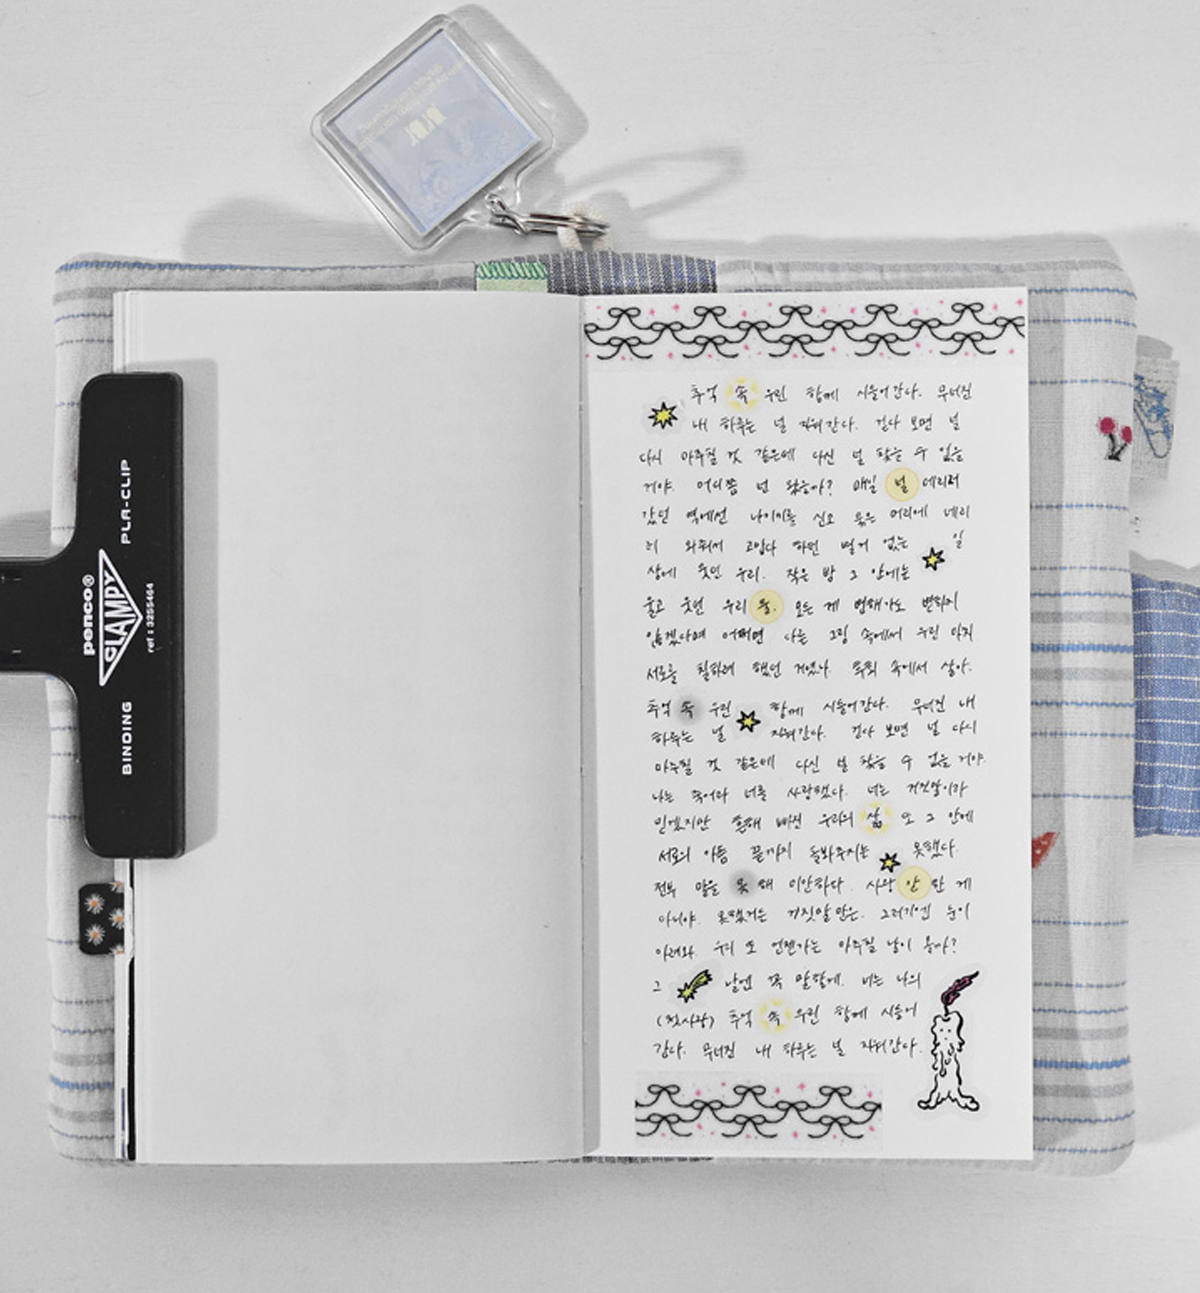 추억 속 우린 함께 시들어간다. 무너진
내 하루는 널 지워간다. 걷다 보면 널
다시 마주칠 것 같은데 다신 널 찾을 수 없을
거야. 어디쯤 넌 왔을까? 매일 널 데리러
갔던 역에선 나이키를 신고 묶은 머리에
와줘서 고맙다 하면 별거 없는 일
상에 웃던 우리. 작은 방 그 안에는
울고 웃던 우리 둘. 모든 게 변해가도 변하지
않겠다며 어쩌면 나는 그림 속에서 우린 마치
서로를 칠하려 했던 거였나. 액자 속에서 살아.
추억 속 우린 함께 시들어간다. 무너진 내
하루는 널 지워간다. 걷다 보면 널 다시
마주칠 것 같은데 다신 널 찾을 수 없을 거야.
나는 죽어라 너를 사랑했다. 너는 거짓말이라
믿겠지만 흔해 빠진 우리의 삶 또 그 안에
서로의 아픔 끝까지 돌봐주지는 못했다.
전부 말을 못 해 미안하다. 사랑 안 한 게
아니야. 못했거든 거짓말만은. 그러기엔 눈이
아려와. 우리 또 언젠가는 마주칠 날이 올까?
그 날엔 꼭 말할게. 너는 나의
(첫사랑) 추억 속 우린 함께 시들어
간다. 무너진 내 하루는 널 지워간다.
penco®
CLAMPY
PLA-CLIP
ref : 3255464
BINDING